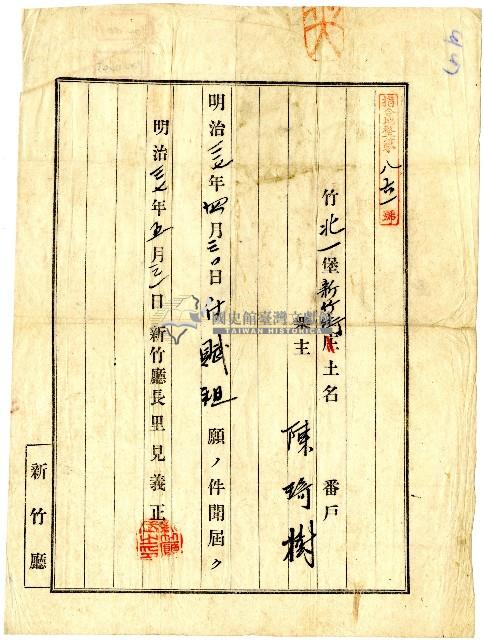 八六一號
竹北一堡新竹街庄土名 番戶
業主 陳琦樹
明治三七年四月三〇日付賦租願ノ件聞屆ク
明治三七年五月三一日 新竹廳長里見義正
新竹廳
國史館臺灣文獻館
TAIWAN HISTORICA